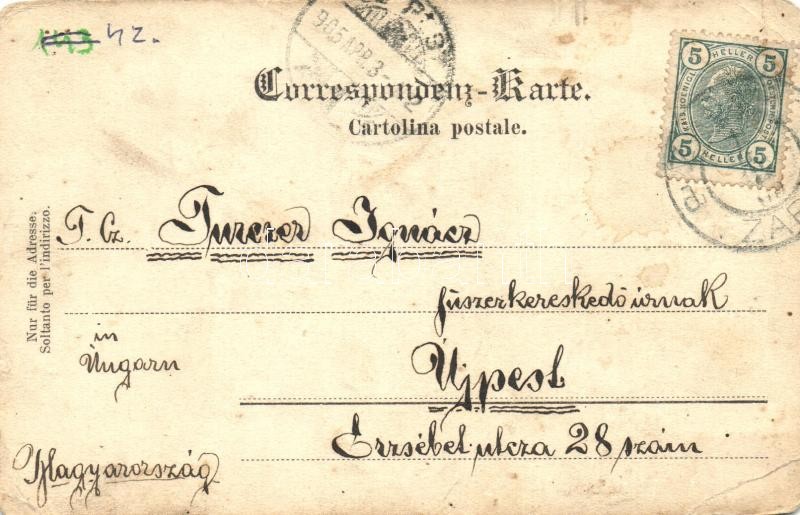 143 42.
905 APR 3
5 HELLER 5
5 HELLER 5
Correspondenz-Karte.
Cartolina postale.
ZAR
Nur für die Adresse.
Soltanto per l'indirizzo.
T. Cz. Turczer Ignácz
füszerkereskedő úrnak
in
Ungarn
Újpest
Erzsébet utcza 28 szám
Magyarország